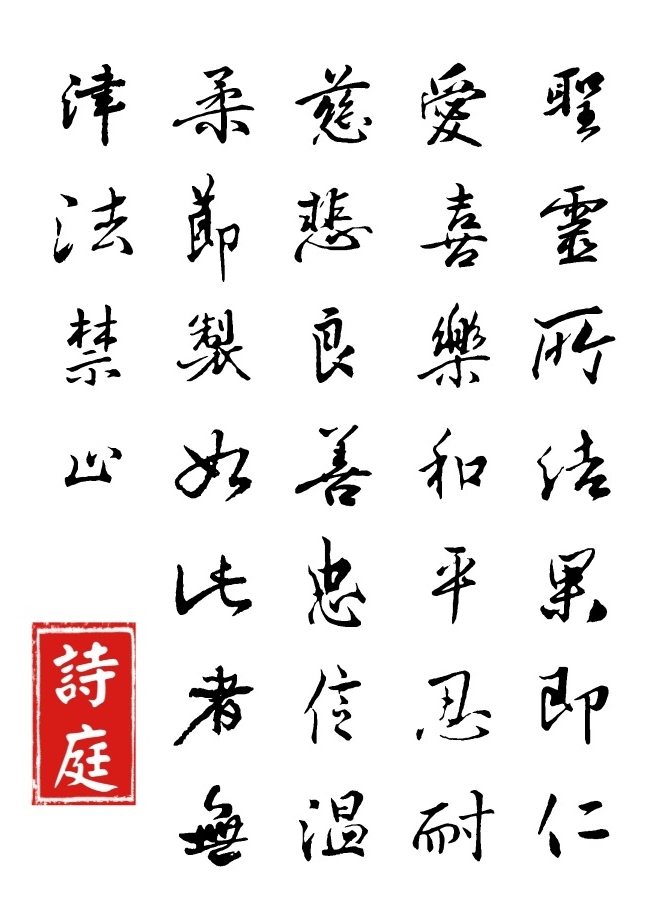 聖靈所結果即仁
愛喜樂和平忍耐
慈悲良善忠信温
柔節製如此者無
津法禁止
詩庭